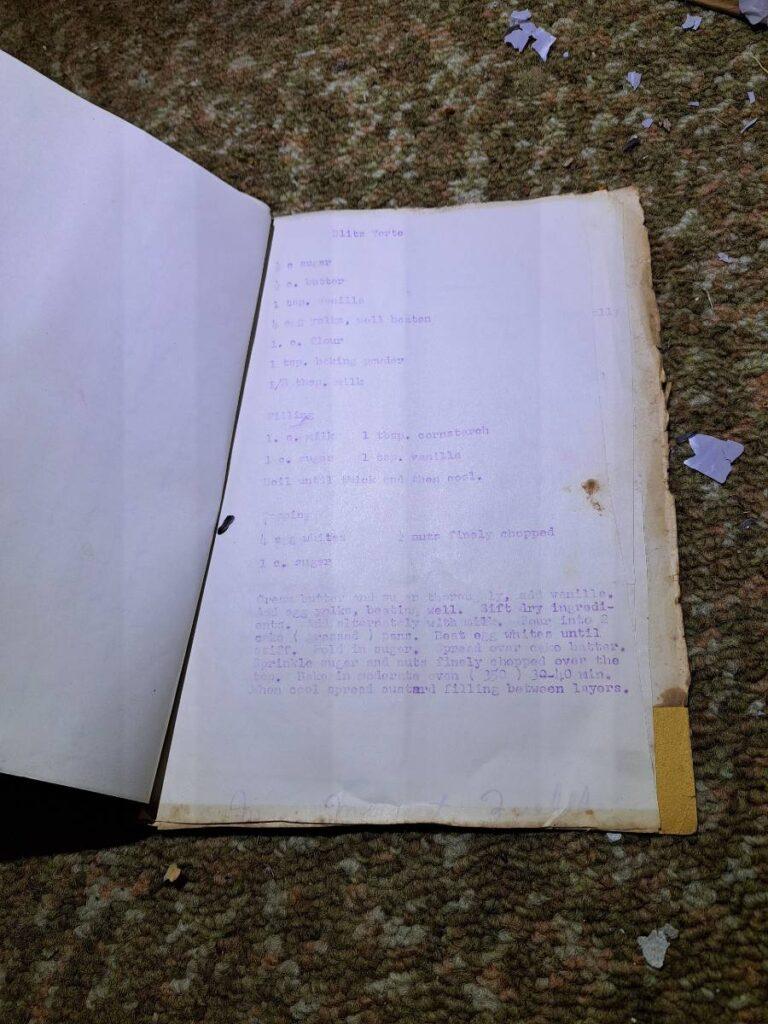 Blitz Torte
½ c sugar
½ c. butter
1 tsp. vanilla
4 egg yolks, well beaten
1. c. flour
1 tsp. baking powder
tbsp. milk
Filling
1. c. milk 1 tbsp. cornstarch
1 c. sugar 1 tsp. vanilla
Boil until thick and then cool.
Topping
4 egg whites 2 nuts finely chopped
1 c. sugar
Cream butter and sugar thoroughly, add vanilla.
Add egg yolks, beating well. Sift dry ingredi-
ents. Add alternately with milk. Pour into 2
cake ( greased ) pans. Beat egg whites until
stiff. Fold in sugar. Spread over cake batter.
Sprinkle sugar and nuts finely chopped over the
top. Bake in moderate oven ( 350 ) 30-40 min.
When cool spread custard filling between layers.